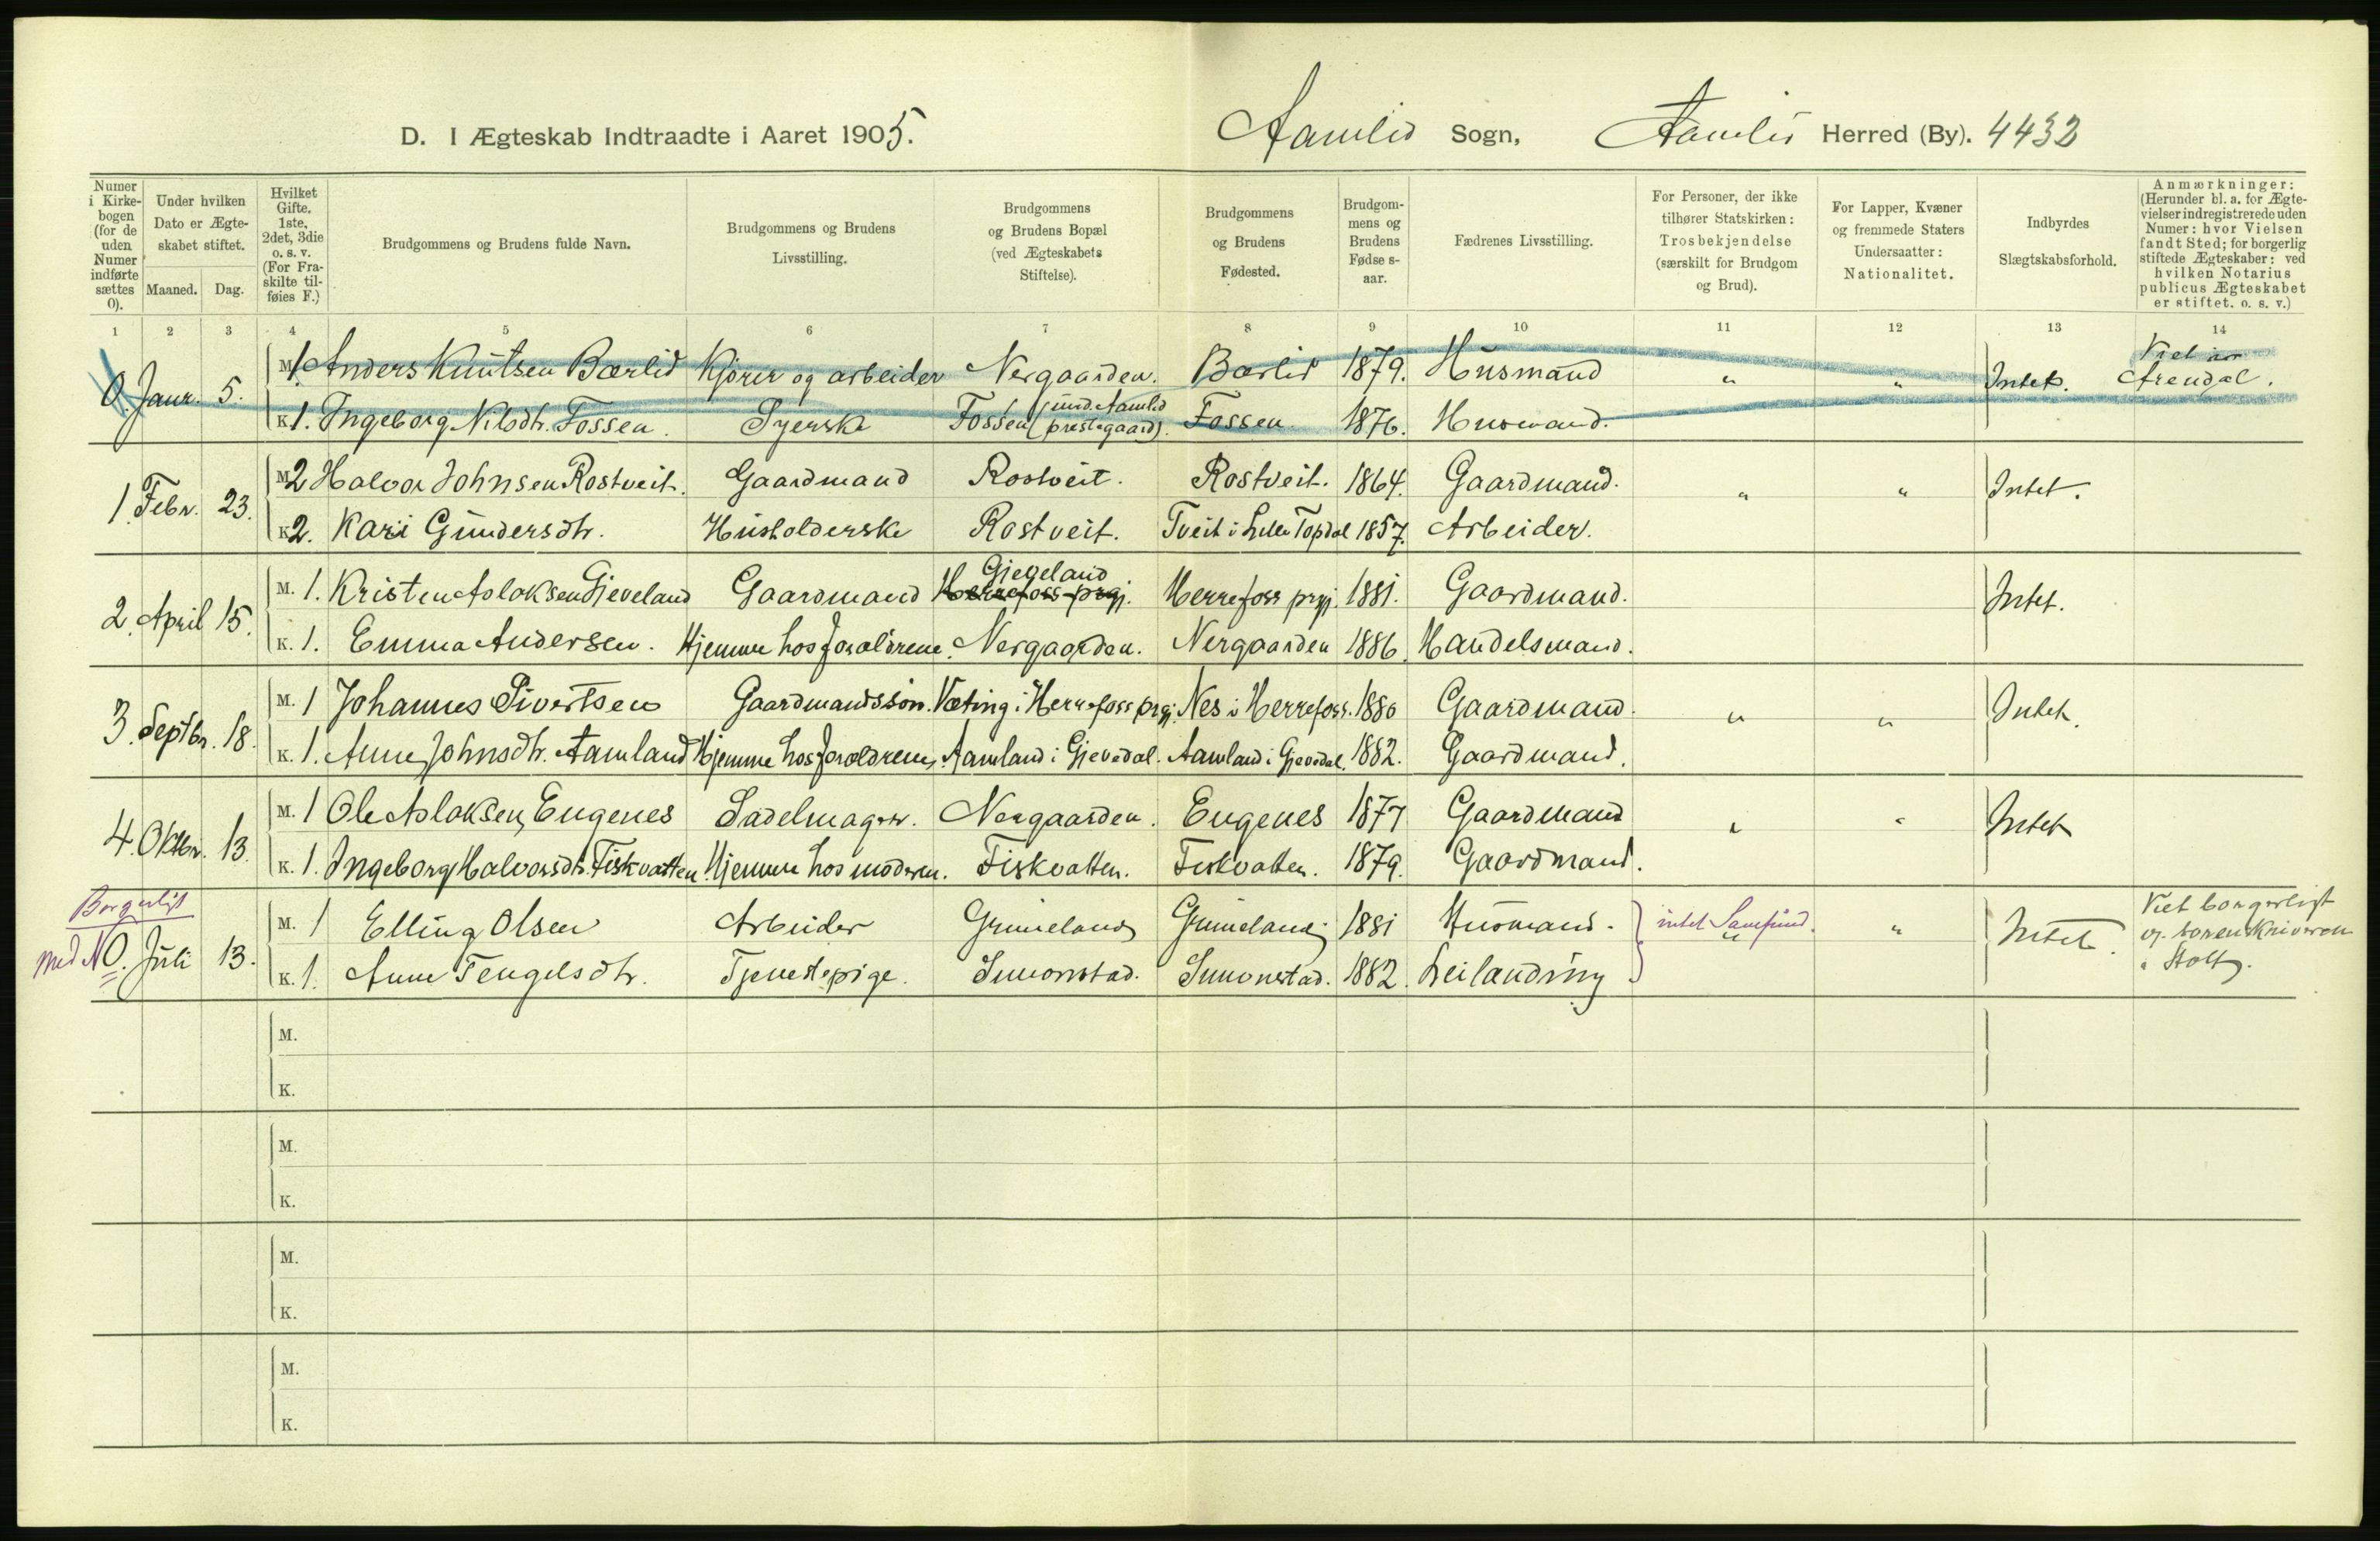 D. I Ægteskab Indtraadte i Aaret 1905. Aamlid Sogn, Aamlid Herred (By). 4432
Numer i Kirkebogen (for de uden Numer indførte sættes 0).
Under hvilken Dato er Ægteskabet stiftet.
Maaned. Dag.
Hvilket Gifte, 1ste, 2det, 3die o. s. v. (For Fraskilte tilføies F.)
Brudgommens og Brudens fulde Navn.
Brudgommens og Brudens Livsstilling.
Brudgommens og Brudens Bopæl (ved Ægteskabets Stiftelse).
Brudgommens og Brudens Fødested.
Brudgommens og Brudens Fødsesaar.
Fædrenes Livsstilling.
For Personer, der ikke tilhører Statskirken: Trosbekjendelse (særskilt for Brudgom og Brud).
For Lapper, Kvæner og fremmede Staters Undersaatter: Nationalitet.
Indbyrdes Slægtskabsforhold.
Anmærkninger: (Herunder bl. a. for Ægtevielser indregistrerede uden Numer: hvor Vielsen fandt Sted; for borgerlig stiftede Ægteskaber: ved hvilken Notarius publicus Ægteskabet er stiftet. o. s. v.)
1 2 3 4 5 6 7 8 9 10 11 12 13 14
0. Janr. 5. M. 1 Anders Knutsen Bærlid Kjører og arbeider Nergaarden. Bærlid 1879. Husmand " " Intet. Viet i Arendal.
K. 1. Ingeborg Nilsdtr. Fossen. Syerske Fossen (und. Aamlid prestegaard). Fossen 1876. Husmand.
1. Febr. 23. M. 2 Halvor Johnsen Rostveit. Gaardmand Rostveit. Rostveit. 1864. Gaardmand. " " Intet.
K. 2. Kari Gundersdtr. Husholderske Rostveit. Tveit i Lille Topdal 1857. Arbeider.
2. April 15. M. 1. Kristen Aslaksen Gjeveland Gaardmand Gjeveland Herrefoss prgj. Herrefoss prgj. 1881. Gaardmand. Intet.
K. 1. Emma Andersen. Hjemme hos forældrene. Nergaarden. Nergaarden 1886. Handelsmand.
3. Septbr. 18. M. 1 Johannes Sivertsen Gaardmandssøn. Væting i Herrefoss prgj. Nes i Herrefoss. 1880 Gaardmand. " " Intet.
K. 1. Anne Johnsdtr. Aamland Hjemme hos forældrene. Aamland i Gjevedal. Aamland i Gjevedal. 1882. Gaardmand.
4. Oktbr. 13. M. 1 Ole Aslaksen Engenes Sadelmager. Nergaarden. Engenes 1877 Gaardmand " " Intet
K. 1. Ingeborg Halvorsdtr. Fiskvatten Hjemme hos moderen. Fiskvatten. Fiskvatten. 1879. Gaardmand.
Borgerligt
med N 0. Juli 13. M. 1 Elling Olsen Arbeider Grimeland Grimeland 1881 Husmand. intet Samfund. " Intet. Viet borgerligt af sorenskriveren i Holt.
K. 1. Anne Tengelsdtr. Tjenestepige. Simonstad. Simonstad. 1882. Leilænding
M.
K.
M.
K.
M.
K.
M.
K.